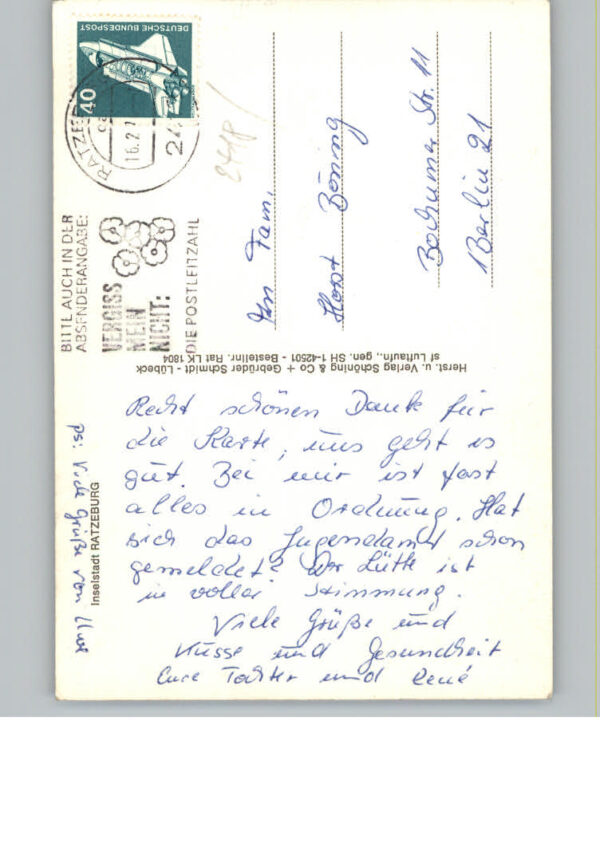 DEUTSCHE BUNDESPOST
40
RATZE
16.2.
24
2418/
BITTE AUCH IN DER
ABSENDERANGABE:
VERGISS
MEIN
NICHT:
DIE POSTLEITZAHL
An Fam.
Horst Böning
Bochumer Str. 11
1 Berlin 21
Herst. u. Verlag Schöning & Co + Gebrüder Schmidt - Lübeck
sf Luftaufn., gen. SH 1-42501 - Bestellnr. Rat LK 1804
Inselstadt RATZEBURG
Recht schönen Dank für
die Karte, uns geht es
gut. Bei mir ist fast
alles in Ordnung. Hat
sich das Jugendamt schon
gemeldet? Der Lütte ist
in voller Stimmung.
Viele Grüße und
Küsse und Gesundheit
Eure Tochter und René
ps: Viele Grüße von